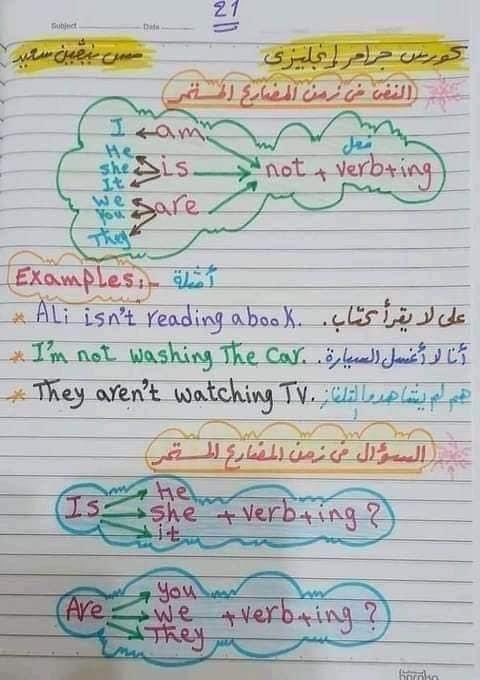 21
Subject Date
كورس جرامر إنجليزى مس نيڤين سعيد
النفى فى زمن المضارع المستمر
I am
He
she is
It
we
you are
They
فعل
not + verb+ing
Examples:- أمثلة
* Ali isn't reading a book. على لا يقرأ كتاب.
* I'm not washing The car. أنا لا أغسل السيارة.
* They aren't watching TV. هم لم يشاهدوا التلفاز
السؤال فى زمن المضارع المستمر
He
Is she + verb+ing ?
it
you
Are we + verb+ing ?
They